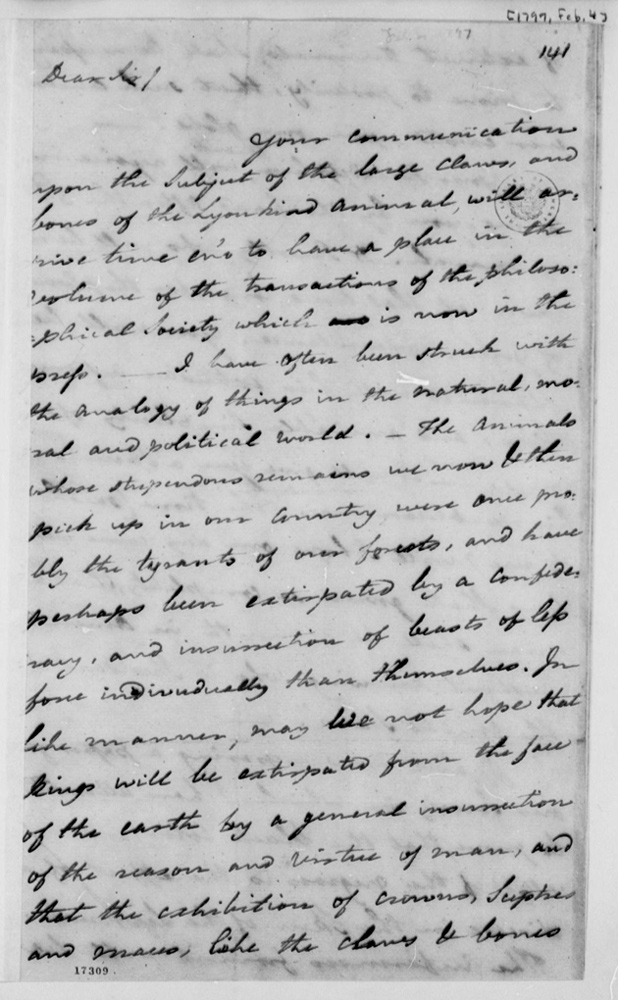 [1797, Feb. 4]
141
Dear Sir/
Your communication
upon the Subject of the large Claws, and
bones of the Lyon kind animal, will ar=
rive time eno' to have a place in the
volume of the transactions of the philoso=
=phical Society which is now in the
press. — I have often been struck with
the analogy of things in the natural, mo=
ral and political world. — The animals
whose stupendous remains we now & then
pick up in our Country were once pro=
bly the tyrants of our forests, and have
perhaps been extirpated by a confede=
racy, and insurrection of beasts of less
force individually than themselves. In
like manner, may we not hope that
kings will be extirpated from the face
of the earth by a general insurrection
of the reason and virtue of man, and
that the exhibition of crowns, Sceptres
and maces, like the claws & bones
17309